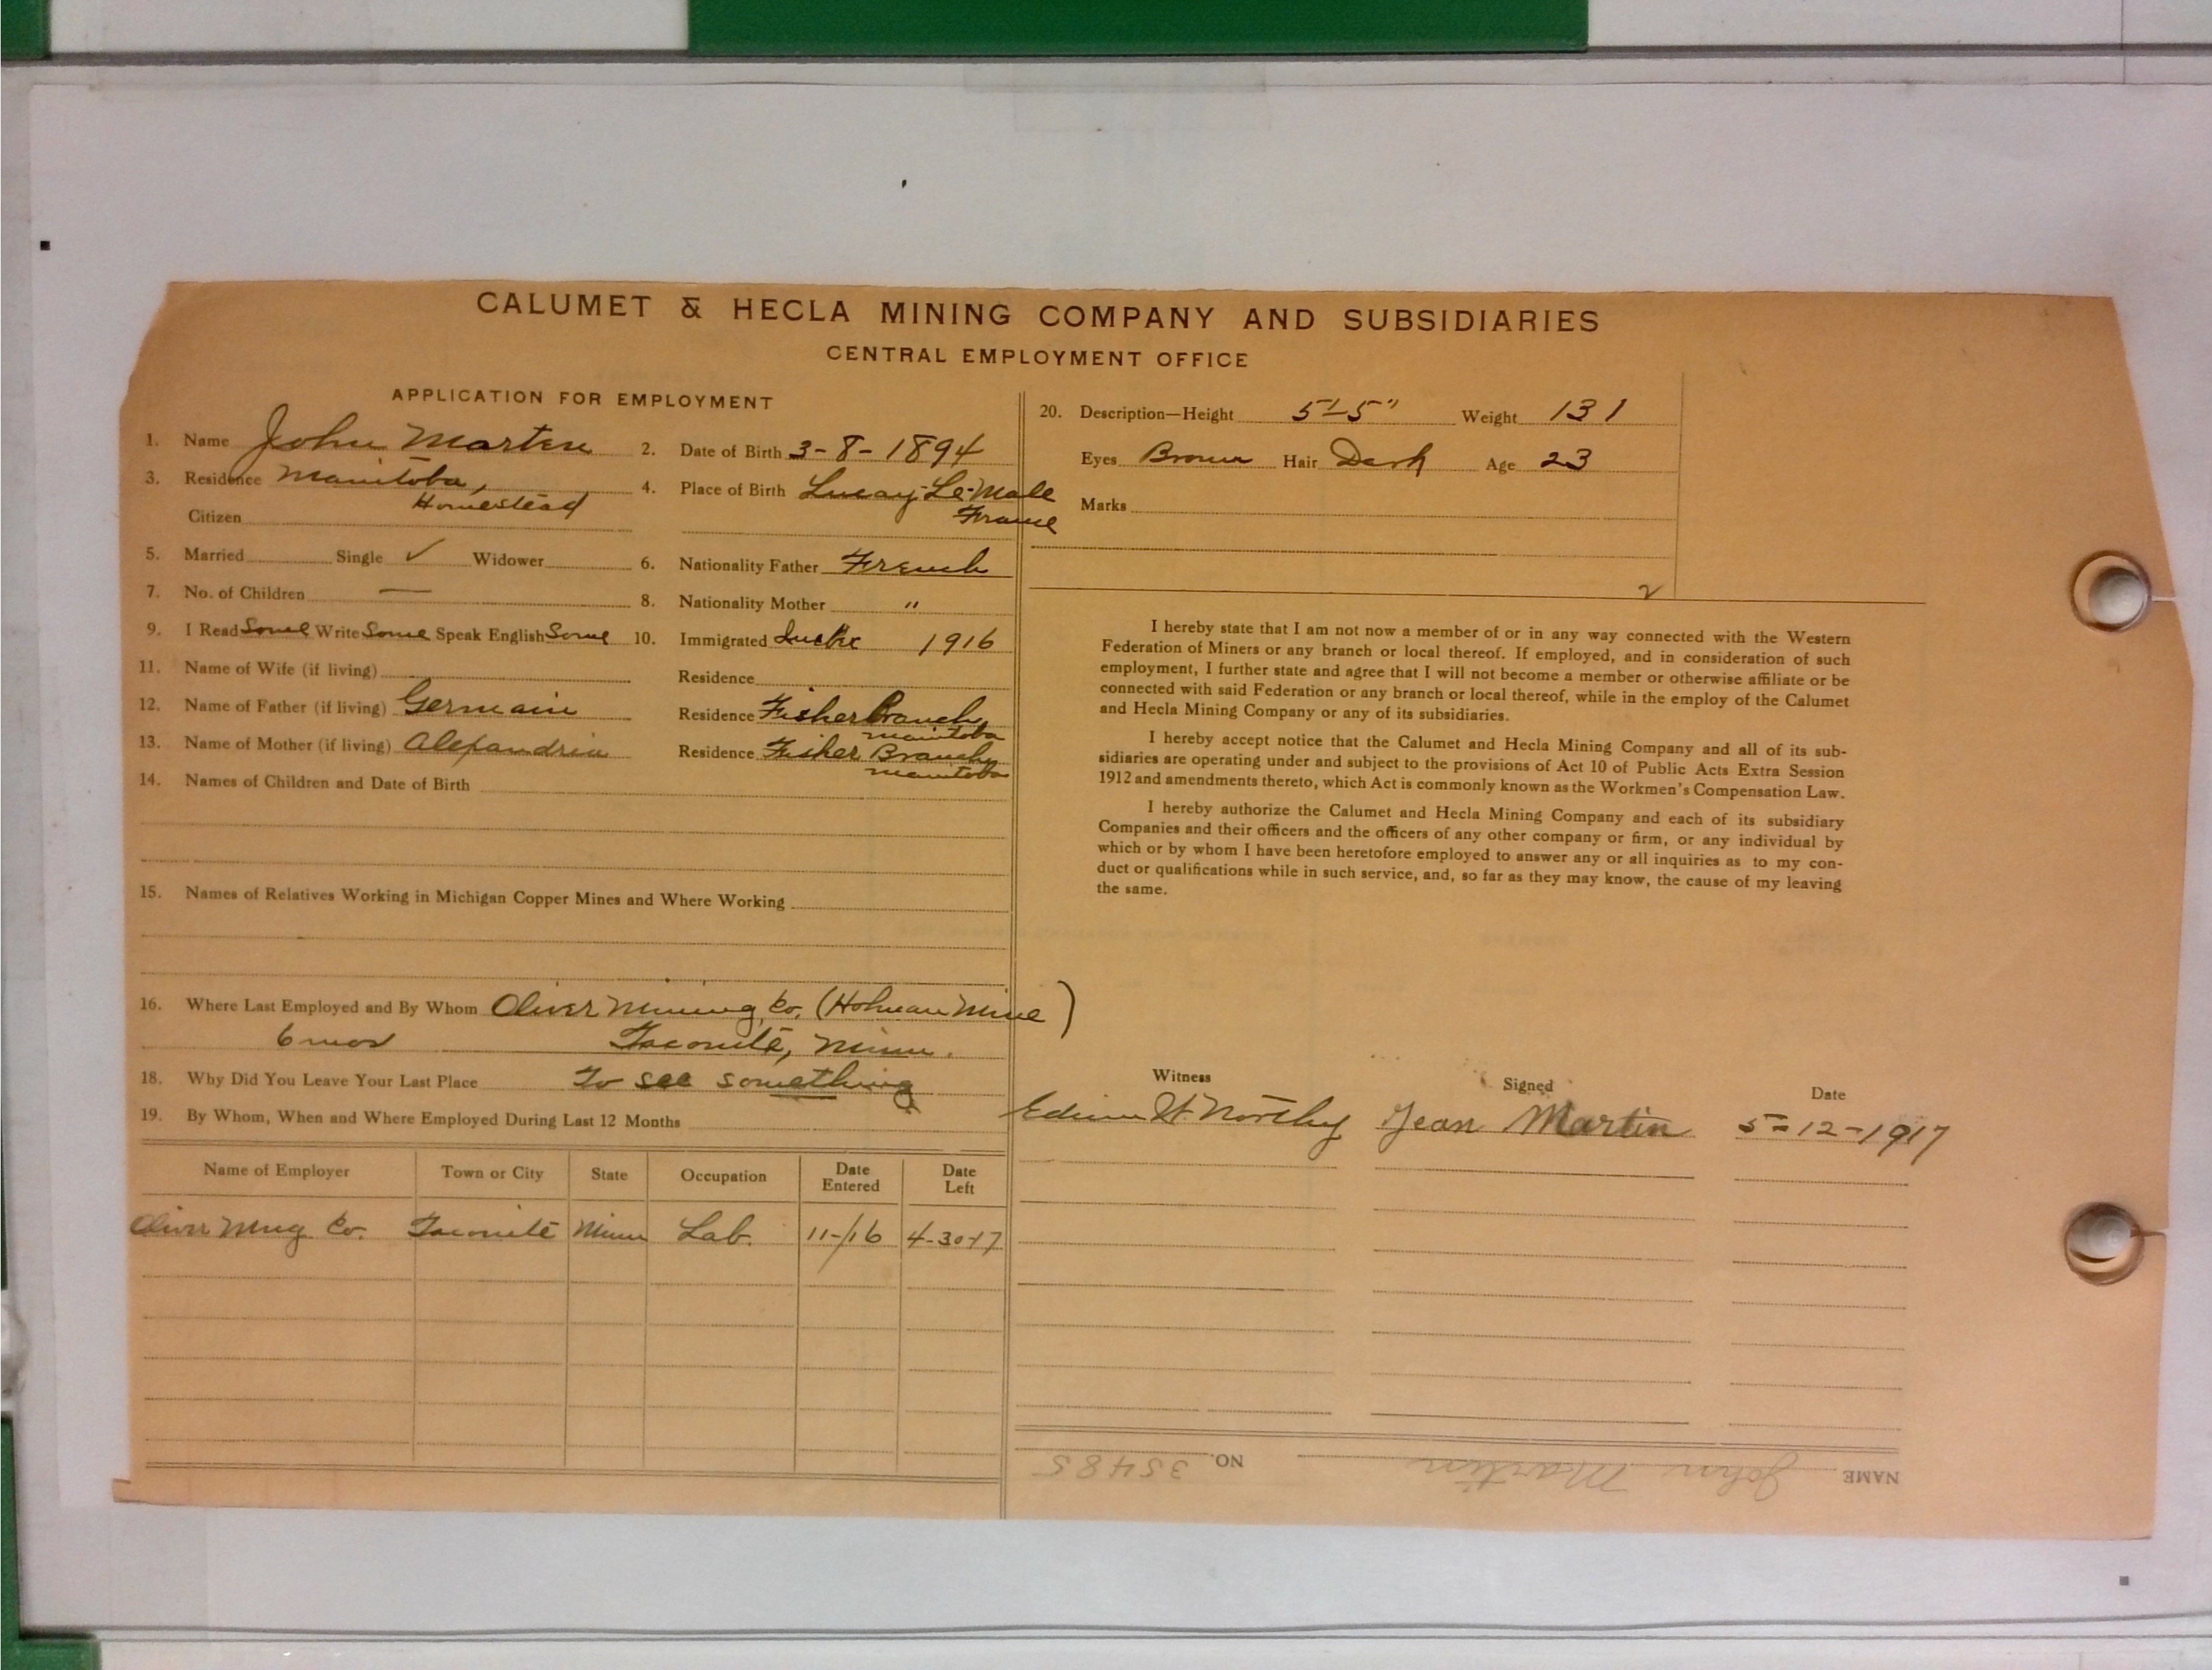 CALUMET & HECLA MINING COMPANY AND SUBSIDIARIES
CENTRAL EMPLOYMENT OFFICE
APPLICATION FOR EMPLOYMENT
1. Name John Marten 2. Date of Birth 3-8-1894
3. Residence Manitoba, 4. Place of Birth Lucay-Le-Male
Homestead France
Citizen
5. Married Single ✓ Widower 6. Nationality Father French
7. No. of Children — 8. Nationality Mother "
9. I Read Some Write Some Speak English Some 10. Immigrated 1916
11. Name of Wife (if living) Residence
12. Name of Father (if living) Germain Residence Fisher Branch,
Manitoba
13. Name of Mother (if living) Alexandria Residence Fisher Branch,
Manitoba
14. Names of Children and Date of Birth
15. Names of Relatives Working in Michigan Copper Mines and Where Working
16. Where Last Employed and By Whom Oliver Mining Co. (Holman Mine)
6 mos Taconite, Minn.
18. Why Did You Leave Your Last Place To see something
19. By Whom, When and Where Employed During Last 12 Months
Name of Employer Town or City State Occupation Date Entered Date Left
Oliver Mng Co. Taconite Minn Lab. 11-/16 4-30-17
20. Description—Height 5'-5" Weight 131
Eyes Brown Hair Dark Age 23
Marks
2
I hereby state that I am not now a member of or in any way connected with the Western
Federation of Miners or any branch or local thereof. If employed, and in consideration of such
employment, I further state and agree that I will not become a member or otherwise affiliate or be
connected with said Federation or any branch or local thereof, while in the employ of the Calumet
and Hecla Mining Company or any of its subsidiaries.
I hereby accept notice that the Calumet and Hecla Mining Company and all of its sub-
sidiaries are operating under and subject to the provisions of Act 10 of Public Acts Extra Session
1912 and amendments thereto, which Act is commonly known as the Workmen's Compensation Law.
I hereby authorize the Calumet and Hecla Mining Company and each of its subsidiary
Companies and their officers and the officers of any other company or firm, or any individual by
which or by whom I have been heretofore employed to answer any or all inquiries as to my con-
duct or qualifications while in such service, and, so far as they may know, the cause of my leaving
the same.
Witness Signed Date
Edwin W. Northey Jean Martin 5-12-1917
NAME John Martin NO. 35485